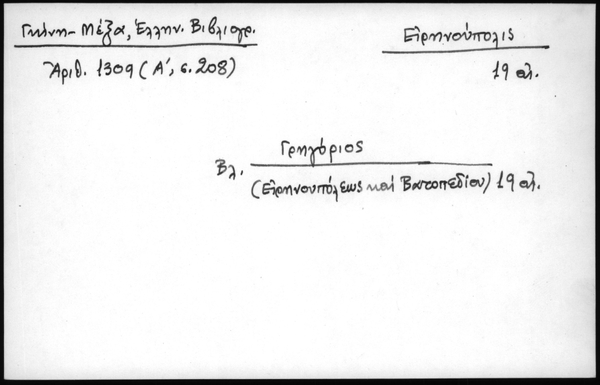 Γκίνη - Μέξα, Ἑλλην. Βιβλιογρ.
Ἀριθ. 1309 (Α', σ. 208)
Εἰρηνούπολις
19 αἰ.
Βλ. Γρηγόριος
(Εἰρηνουπόλεως καὶ Βατοπεδίου) 19 αἰ.